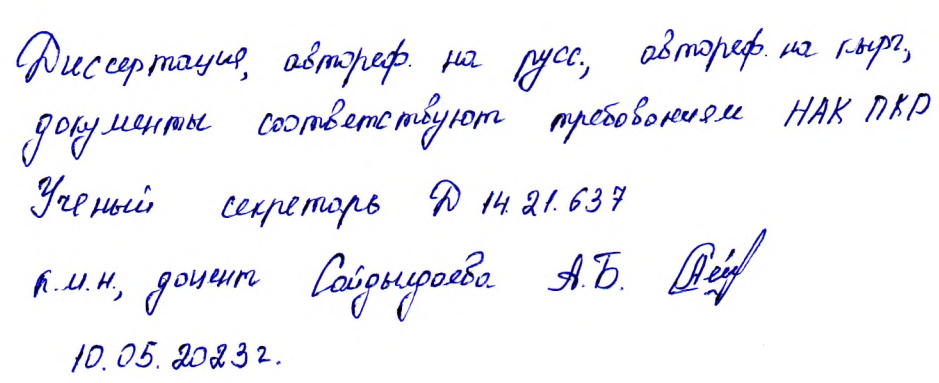 Диссертация, автореф. на русс., автореф. на кырг.,
документы соответствуют требованиям НАК ПКР
Ученый секретарь Д 14.21.637
к.м.н., доцент Сайдылдаева А.Б.
10.05.2023г.